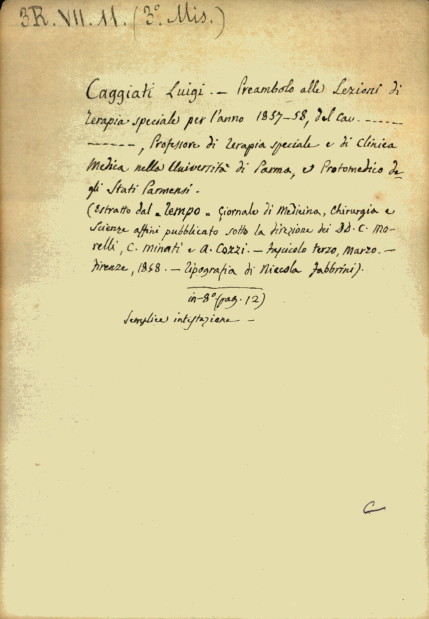 3R. VII. 11. (3.º Mis.)
Caggiati Luigi. — Preambolo alle Lezioni di
Terapia speciale per l'anno 1857-58, del Cav. ------
------, Professore di Terapia speciale e di Clinica
Medica nella Università di Parma, e Protomedico de-
gli Stati Parmensi.
(Estratto dal „Tempo„ Giornale di Medicina, Chirurgia e
Scienze affini pubblicato sotto la direzione dei DD. C. Mo-
relli, C. Minati e A. Cozzi. — Fascicolo terzo, Marzo. —
Firenze, 1858. — Tipografia di Niccola Fabbrini).
in-8º (pag. 12)
Semplice intestazione —
C